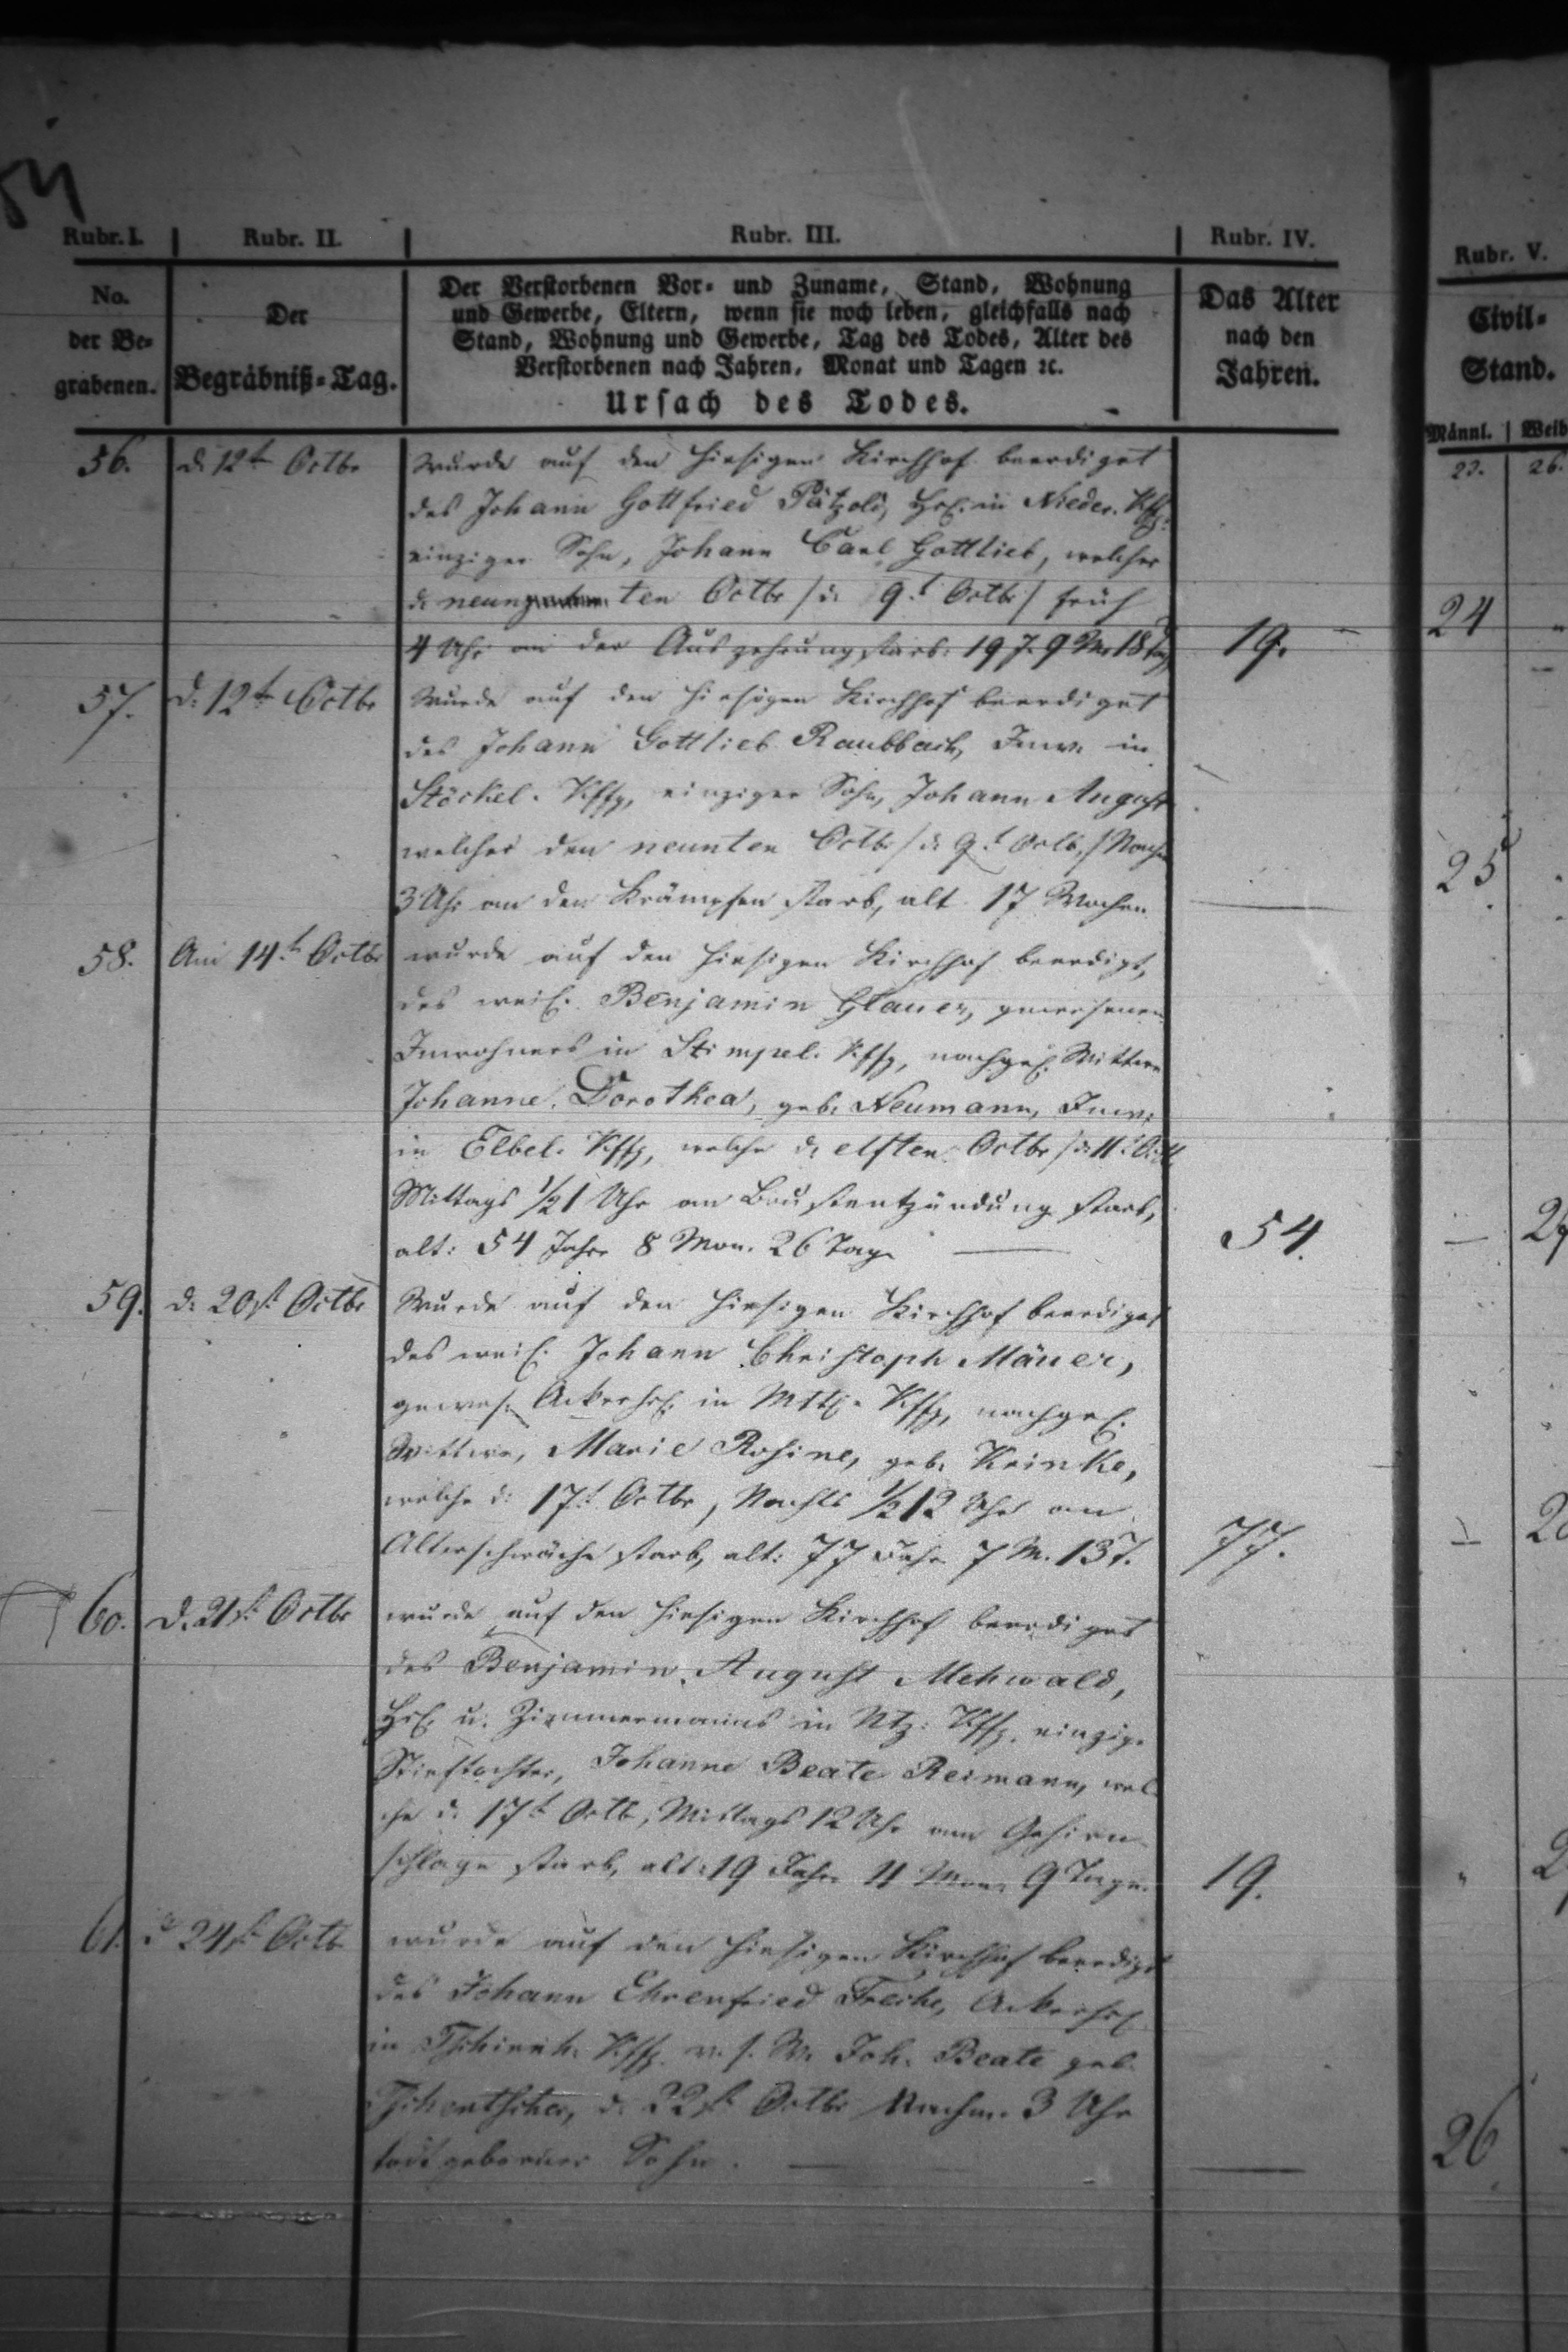 Rubr. I. Rubr. II. Rubr. III. Rubr. IV. Rubr. V.
No. der Be-grabenen.
Der Begräbniß-Tag.
Der Verstorbenen Vor- und Zuname, Stand, Wohnung
und Gewerbe, Eltern, wenn sie noch leben, gleichfalls nach
Stand, Wohnung und Gewerbe, Tag des Todes, Alter des
Verstorbenen nach Jahren, Monat und Tagen ꝛc.
Ursach des Todes.
Das Alter nach den Jahren.
Civil-Stand.
Männl. Weib
23. 26.
56. d. 12t Octbr wurde auf den hiesigen Kirchhof beerdiget
des Johann Gottfried Pätzold, Hsl. in Nieder. Kffg.
einziger Sohn, Johann Carl Gottlieb, welcher
d. neun ten Octbr / d. 9t Octbr / früh
4 Uhr an der Auszehrung starb: 19 J. 9 M. 18 Tg 19. 24
57. d. 12t Octbr wurde auf den hiesigen Kirchhof beerdiget
des Johann Gottlieb Raubbach, Inw. in
Stöckel. Kffg, einziger Sohn, Johann August
welcher den neunten Octbr / d. 9t Octb. / Nachm
3 Uhr an den Krämpfen starb, alt 17 Wochen 25
58. Am 14t Octbr wurde auf den hiesigen Kirchhof beerdigt,
des weil. Benjamin Glauer, gewesenen
Inwohners in Stimpel. Kffg, nachgel. Wittwe
Johanne Dorothea, geb. Neumann, Inw.
in Elbel. Kffg, welche d. elften Octbr / d. 11t Octb
Mittags 1/2 1 Uhr an Brustentzündung starb,
alt: 54 Jahr 8 Mon. 26 Tage 54.
59. d. 20st Octbr Wurde auf den hiesigen Kirchhof beerdiget
des weil. Johann Christoph Mäuer,
gewes. Ackerhsl. in Mttl. Kffg, nachgel.
Wittwe, Marie Rosine, geb. Keinke,
welche d. 17t Octbr, Nachts 1/2 12 Uhr an
Alterschwäche starb, alt: 77 Jahr 7 M. 13 T. 77.
60. d. 21st Octbr wurde auf den hiesigen Kirchhof beerdiget
des Benjamin August Mehwald,
Hsl. u. Zimmermanns in Ntz. Kffg. einzige
Stieftochter, Johanne Beate Reimann, wel
che d. 17t Octb, Mittags 12 Uhr am Gehirn-
schlage starb, alt: 19 Jahr 11 Mon. 9 Tage. 19.
61. d 24st Octb wurde auf den hiesigen Kirchhof beerdigt
des Johann Ehrenfried Freche, Ackerhsl
in Tschirnh. Kffg. v. s. W. Joh. Beate geb.
Tschentscher, d. 22st Octbr Nachm. 3 Uhr
todtgeborner Sohn. 26